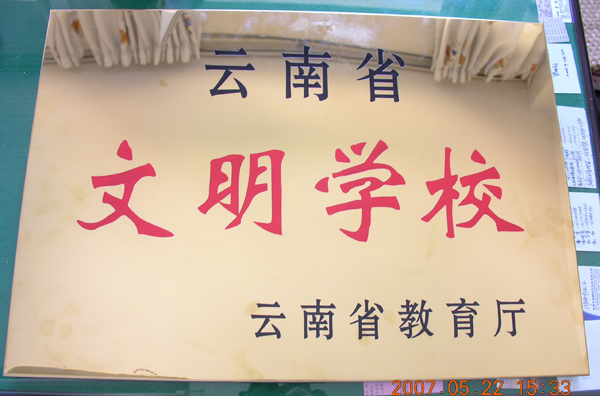 云南省
文明学校
云南省教育厅
2007.05.22 15:33